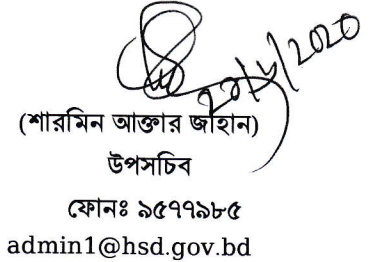 (শারমিন আক্তার জাহান)
উপসচিব
ফোনঃ ৯৫৭৭৯৮৫
admin1@hsd.gov.bd